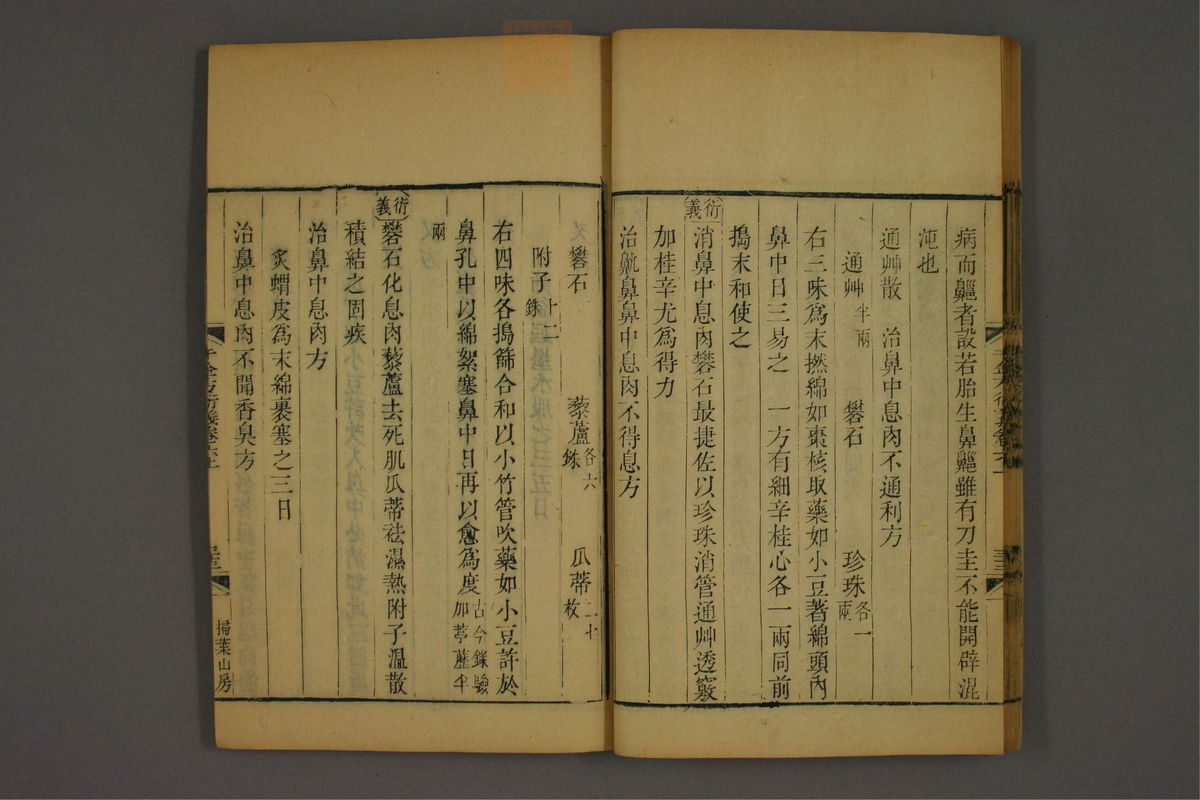 病而齆者設若胎生鼻齆雖有刀圭不能開辟混
沌也
通艸散 治鼻中息肉不通利方
通艸半兩 礬石 珍珠各一兩
右三味爲末撚綿如棗核取藥如小豆著綿頭內
鼻中日三易之 一方有細辛桂心各一兩同前
搗末和使之
衍義 消鼻中息肉礬石最捷佐以珍珠消管通艸透竅
加桂辛尤爲得力
治齆鼻鼻中息肉不得息方
礬石 藜蘆各六銖 瓜蒂二七枚
附子十二銖
右四味各搗篩合和以小竹管吹藥如小豆許於
鼻孔中以綿絮塞鼻中日再以愈爲度古今錄驗加葶藶半
兩
衍義 礬石化息肉藜蘆去死肌瓜蒂祛濕熱附子溫散
積結之固疾
治鼻中息肉方
炙蝟皮爲末綿裹塞之三日
治鼻中息肉不聞香臭方
千金方衍義卷六上
三三
掃葉山房